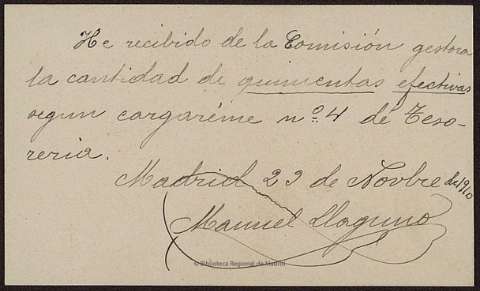 He recibido de la Comisión gestora
la cantidad de quinientas efectivas
segun cargaréme nº 4 de Teso-
reria.
Madrid 23 de Novbre de 1910
Manuel Llaguno
© Biblioteca Regional de Madrid